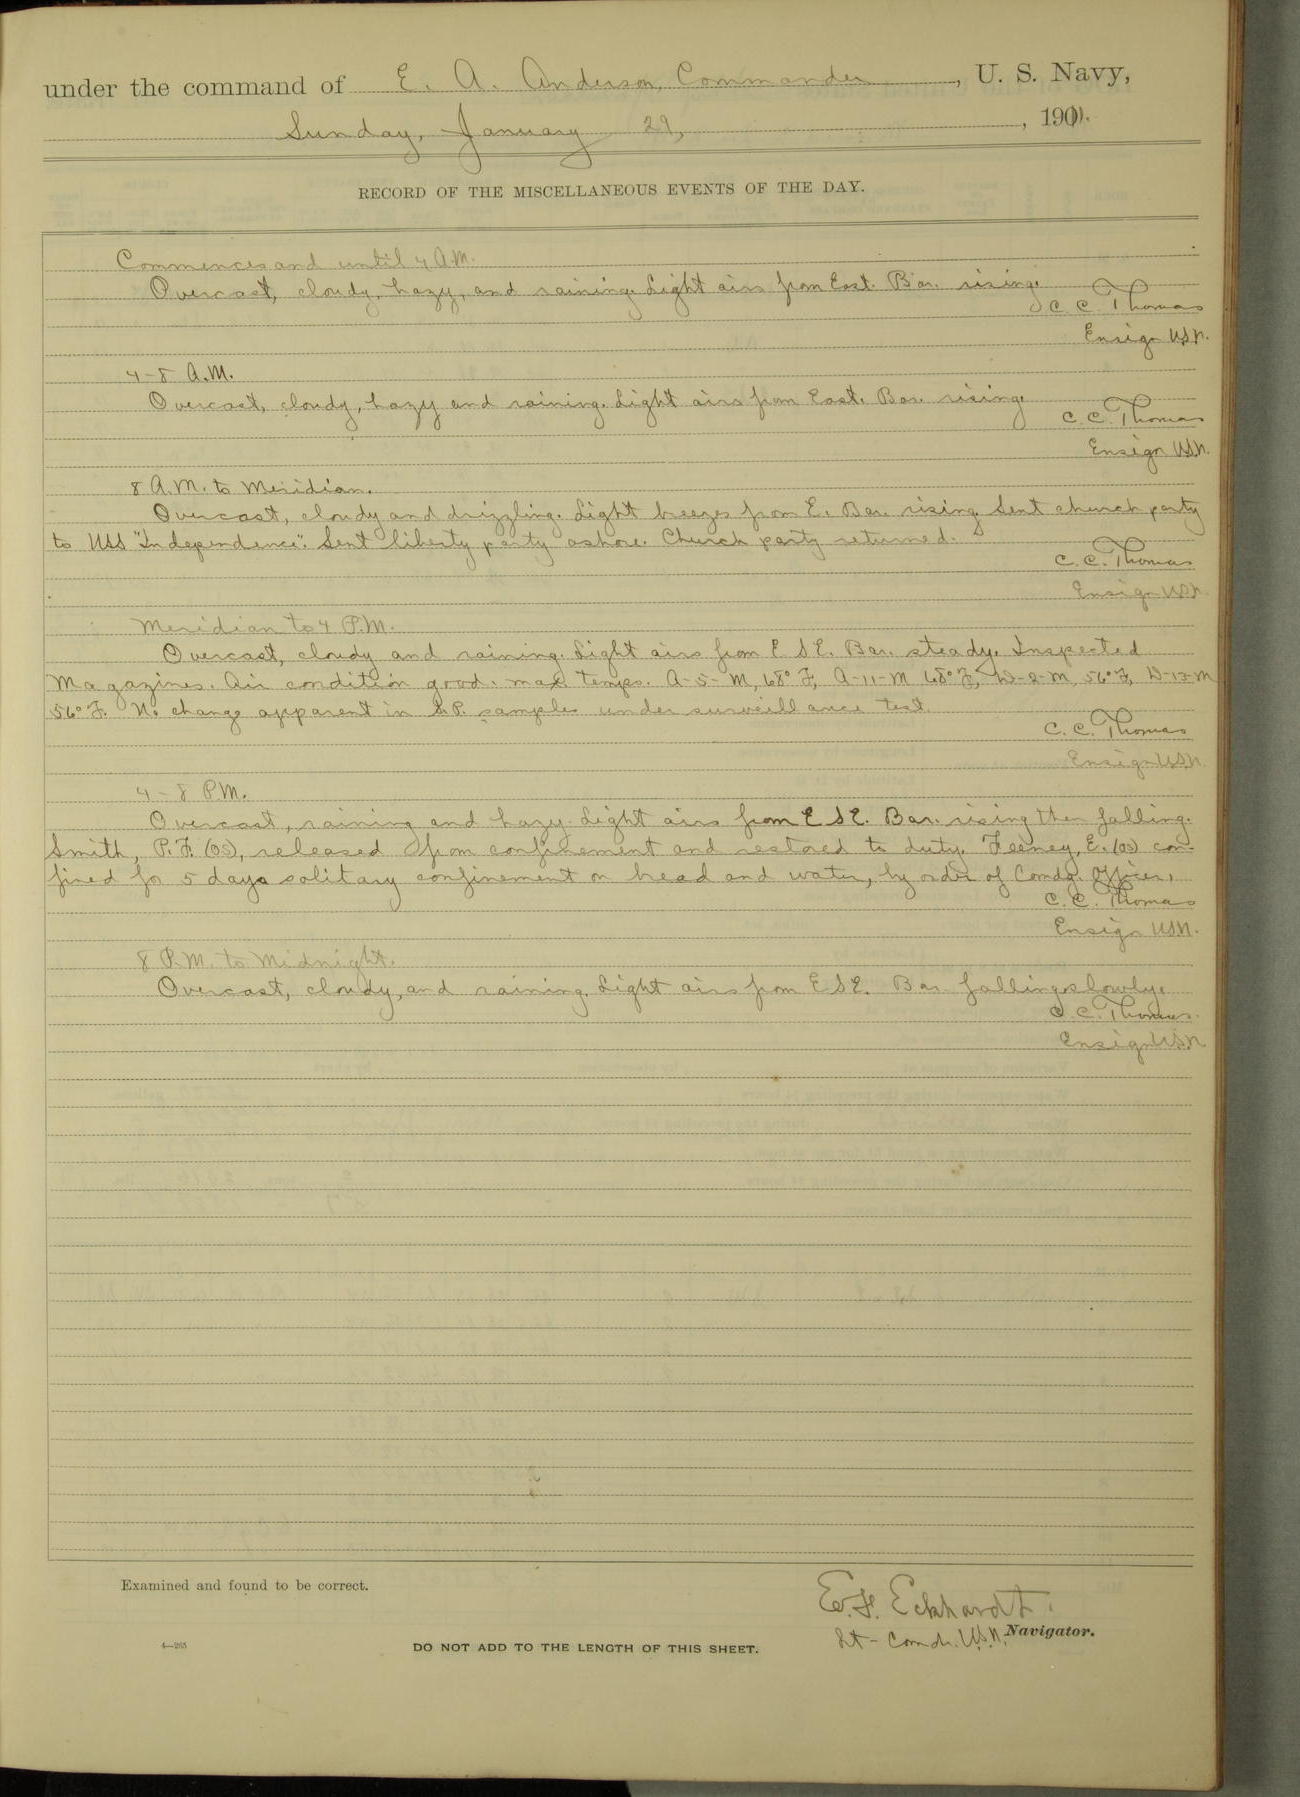 under the command of E. A. Anderson, Commander, U. S. Navy,
Sunday, January 29, 1911.
RECORD OF THE MISCELLANEOUS EVENTS OF THE DAY.
Commences and until 4 A.M.
Overcast, cloudy, hazy, and raining. Light airs from East. Bar. rising.
C. C. Thomas
Ensign USN.
4-8 A.M.
Overcast, cloudy, hazy and raining. Light airs from East. Bar. rising.
C. C. Thomas
Ensign USN.
8 A.M. to Meridian.
Overcast, cloudy and drizzling. Light breezes from E. Bar. rising. Sent church party
to USS "Independence". Sent liberty party ashore. Church party returned.
C. C. Thomas
Ensign USN.
Meridian to 4 P.M.
Overcast, cloudy and raining. Light airs from E S E. Bar. steady. Inspected
Magazines. Air condition good. max. temps. A-5-M, 68° F, A-11-M 68° F, D-2-M, 56° F, D-13-M
56° F. No change apparent in S.P. samples under surveillance test.
C. C. Thomas
Ensign USN.
4-8 P.M.
Overcast, raining and hazy. Light airs from E S E. Bar. rising then falling.
Smith, P. F. (OS), released from confinement and restored to duty. Feeney, E. (OS) con-
fined for 5 days solitary confinement on bread and water, by order of Comdg. Officer.
C. C. Thomas
Ensign USN.
8 P.M. to Midnight.
Overcast, cloudy, and raining. Light airs from E S E. Bar falling slowly.
C. C. Thomas.
Ensign USN
Examined and found to be correct.
E. F. Eckhardt.
Lt-Comdr. U.S.N. Navigator.
4—265
DO NOT ADD TO THE LENGTH OF THIS SHEET.